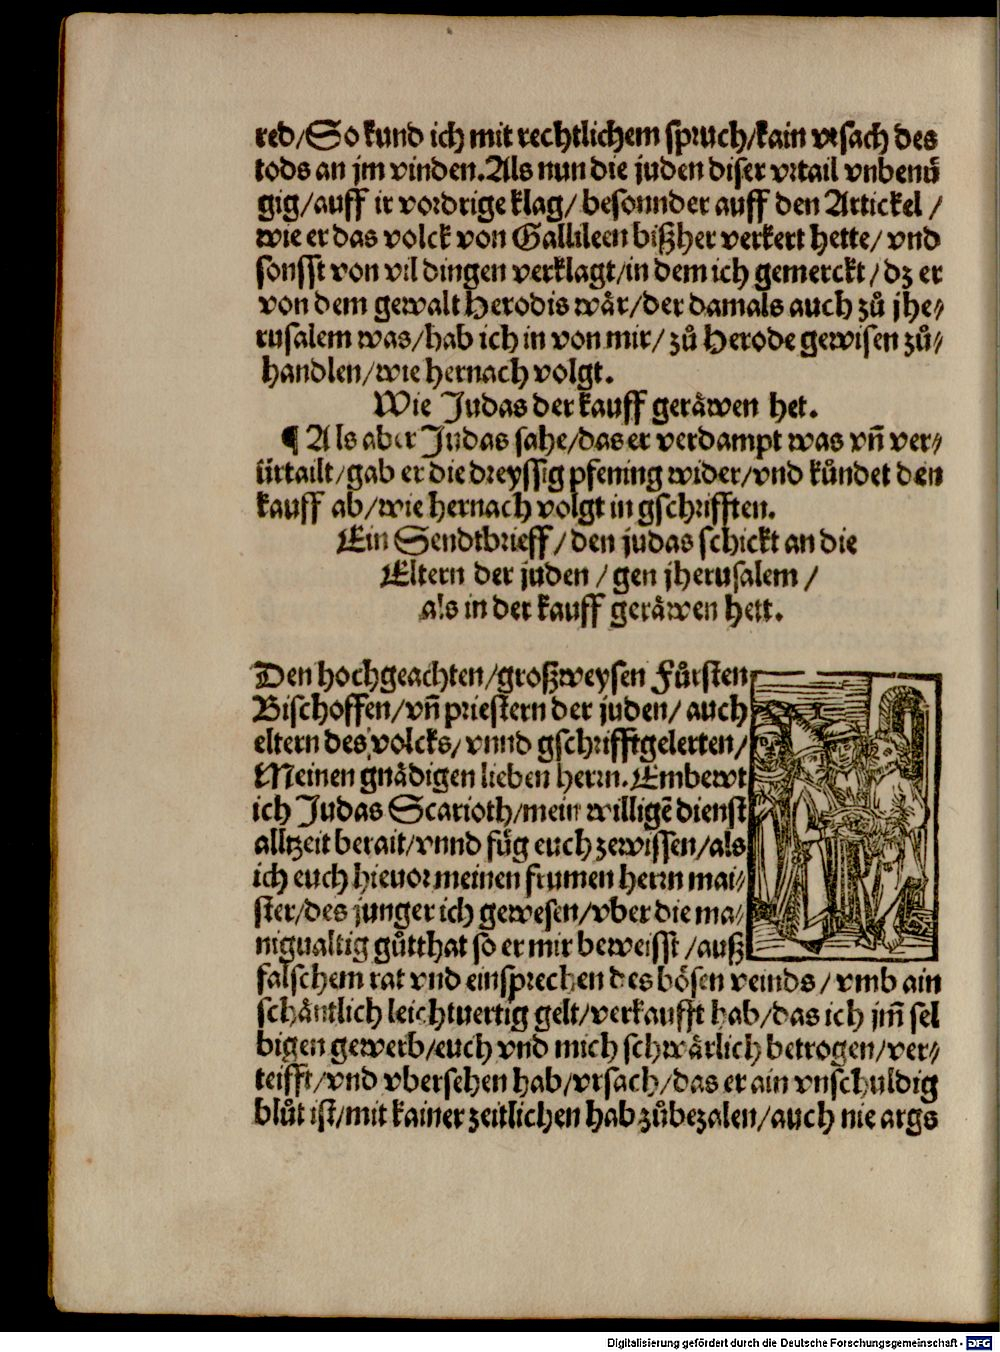 red/So kund ich mit rechtlichem spruch/kain vrsach des
tods an jm vinden.Als nun die juden diser vrtail vnbenuͤ
gig/auff ir vordrige klag/ besonnder auff den Artickel /
wie er das volck von Gallileen bißher verkert hette/ vnd
sonsst von vil dingen verklagt/in dem ich gemerckt / dz er
von dem gewalt Herodis waͤr/der damals auch zuͦ jhe⸗
rusalem was/hab ich in von mir/ zuͦ Herode gewisen zuͦ⸗
handlen/wie hernach volgt.
Wie Judas der kauff geraͤwen het.
¶ Als aber Judas sahe/das er verdampt was vñ ver⸗
ürtailt/gab er die dreyssig pfening wider/vnd kuͤndet den
kauff ab/wie hernach volgt in gschrifften.
Ein Sendtbrieff/den judas schickt an die
Eltern der juden /gen jherusalem /
als in der kauff geraͤwen hett.
Den hochgeachten/großweysen Fuͤrsten
Bischoffen/vñ priestern der juden/ auch
eltern des volcks/ vnnd gschrifftgelerten/
Meinen gnaͤdigen lieben herrn. Embewt
ich Judas Scarioth/mein willigẽ dienst
alltzeit berait/vnnd fuͤg euch zewissen/als
ich euch hieuor meinen frumen herrn mai⸗
ster/des junger ich gewesen/vber die ma⸗
nigualtig guͦtthat so er mir beweisst /auß
falschem rat vnd einsprechen des boͤsen veinds/ vmb ain
schaͤntlich leichtuertig gelt/verkaufft hab/das ich jm̃ sel
bigen gewerb/euch vnd mich schwaͤrlich betrogen/ver⸗
teifft/vnd vbersehen hab/vrsach/das er ain vnschuldig
bluͦt ist/mit kainer zeitlichen hab zuͦbezalen/auch nie args
Digitalisierung gefördert durch die Deutsche Forschungsgemeinschaft - DFG